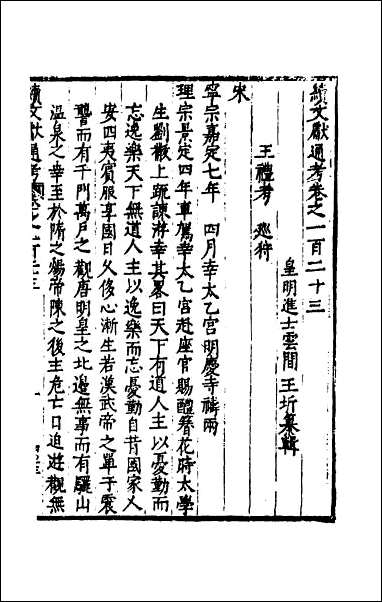 續文獻通考卷之一百二十三
皇明進士雲間王圻纂輯
王禮考 巡狩
宋
寧宗嘉定七年 四月幸太乙宮明慶寺禱雨
理宗景定四年車駕幸太乙宮赴座官賜醴簪花時太學
生劉黻上疏諫游幸其畧曰天下有道人主以憂勤而
忘逸樂天下無道人主以逸樂而忘憂勤自昔國家乂
安四夷賓服享國日久侈心漸生若漢武帝之單于震
讋而有千門萬戶之觀唐明皇之北邊無事而有驪山
溫泉之幸至於隋之煬帝陳之後主危亡日迫遊觀無
續文獻通考